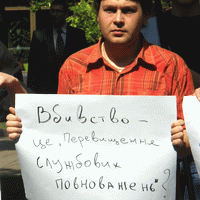 Вбивство –
це „Перевищення
службових
повноважень"?